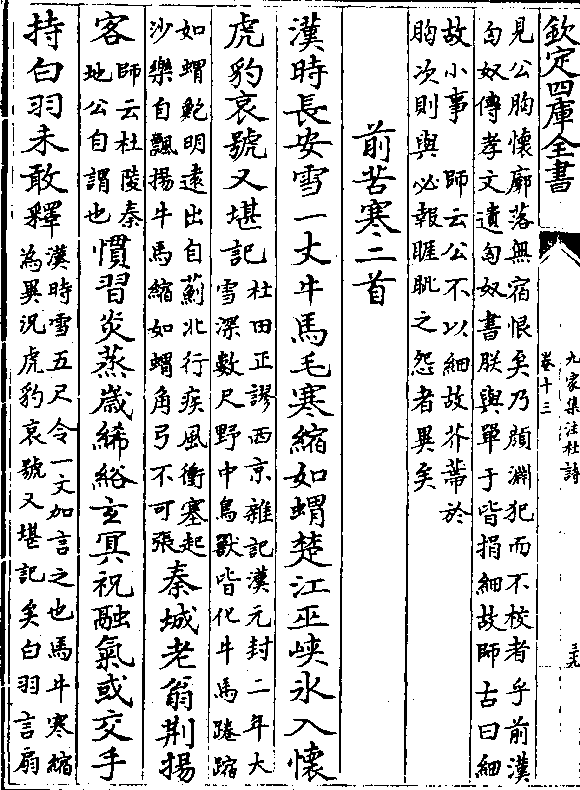 欽定四庫全書
九家集注杜詩
卷十三
見公胸懐廓落無宿恨矣乃顔淵犯而不校者乎前漢
匈奴傳孝文遺匈奴書朕與單于皆捐細故師古曰細
故小事　師云公不以細故芥蔕於
胸次則與必報睚眦之怨者異矣
前苦寒二首
漢時長安雪一丈牛馬毛寒縮如蝟楚江巫峽氷入懐
虎豹哀號又堪記
杜田正謬西京雜記漢元封二年大
雪深數尺野中鳥獸皆化牛馬踡蹜
如蝟鮑明逺出自薊北行疾風衝塞起
沙樂自飄揚牛馬縮如蝟角弓不可張
秦城老翁荆揚
客
師云杜陵秦
地公自謂也
慣習炎蒸歳絺綌玄冥祝融氣或交手
持白羽未敢釋
漢時雪五尺令一文加言之也馬牛寒縮
為異況虎豹哀號又堪記矣白羽言扇